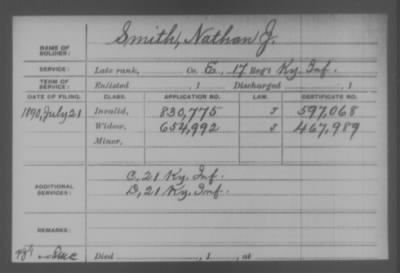 NAME OF SOLDIER: Smith, Nathan J.
SERVICE: Late rank, Co. E, 17 Reg't Ky. Inf.
TERM OF SERVICE: Enlisted , 1 Discharged , 1
DATE OF FILING. CLASS. APPLICATION NO. LAW. CERTIFICATE NO.
1890, July 21 Invalid, 830,775 J 597,068
Widow, 654,992 J 467,989
Minor,
ADDITIONAL SERVICES: C, 21 Ky. Inf.
D, 21 Ky. Inf.
REMARKS:
Died , 1 , at